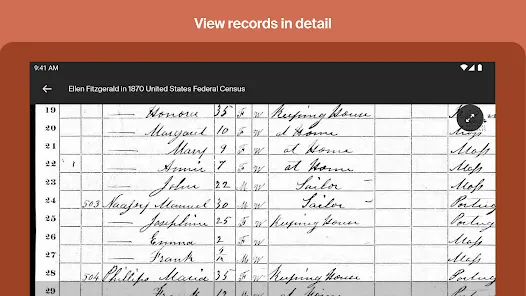 View records in detail
9:41 AM
Ellen Fitzgerald in 1870 United States Federal Census
19 — Honora 35 F W Keeping House
20 — Margaret 10 F W at Home
21 — Mary 9 F W at Home Mass
22 1 — Annie 7 F W at Home Mass
23 — John 22 M W Sailor Mass
24 503 Manuel 30 M W Sailor Portug
25 — Josephine 25 F W Keeping House Portug
26 — Emma 2 F W Mass
27 — Frank M W Mass
28 504 Phillips Maria 35 F W Keeping House Portug
29 Frank 12 M W Portug